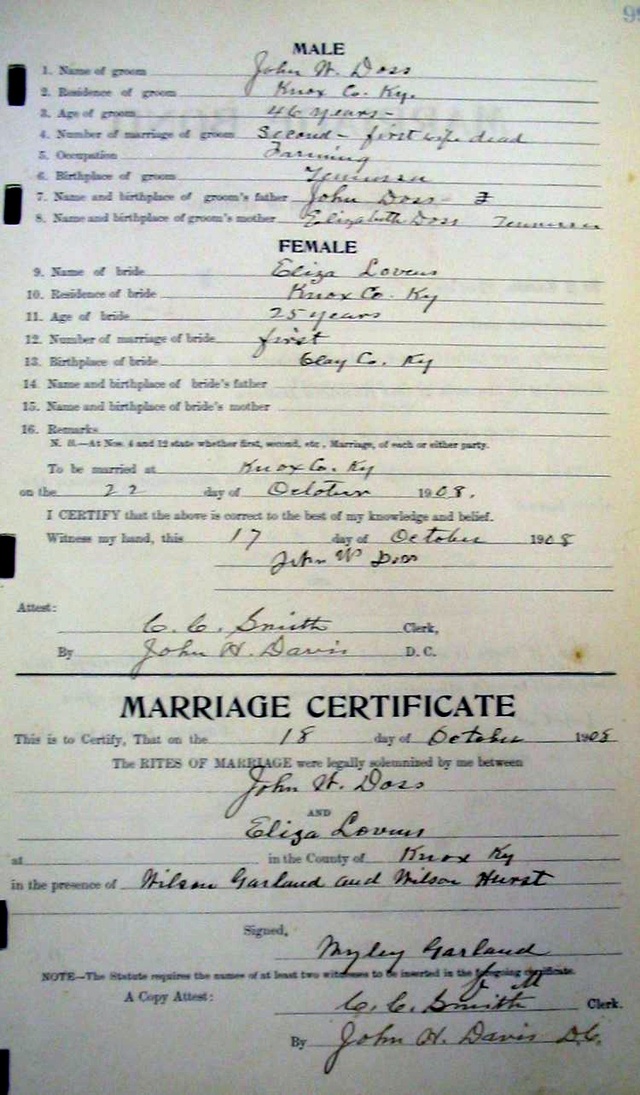 99
MALE
1. Name of groom John W. Doss
2. Residence of groom Knox Co. Ky.
3. Age of groom 46 years-
4. Number of marriage of groom Second - first wife dead
5. Occupation Farming
6. Birthplace of groom Tennessee
7. Name and birthplace of groom's father John Doss
8. Name and birthplace of groom's mother Elizabeth Doss Tennessee
FEMALE
9. Name of bride Eliza Lovens
10. Residence of bride Knox Co. Ky
11. Age of bride 25 years
12. Number of marriage of bride first
13. Birthplace of bride Clay Co. Ky
14. Name and birthplace of bride's father
15. Name and birthplace of bride's mother
16. Remarks
N. B.—At Nos. 4 and 12 state whether first, second, etc., Marriage, of each or either party.
To be married at Knox Co. Ky
on the 22 day of October 1908.
I CERTIFY that the above is correct to the best of my knowledge and belief.
Witness my hand, this 17 day of October 1908
John W Doss
Attest:
C. C. Smith Clerk,
By John H. Davis D. C.
MARRIAGE CERTIFICATE
This is to Certify, That on the 18 day of October 1908
The RITES OF MARRIAGE were legally solemnized by me between
John W. Doss
AND
Eliza Lovens
at in the County of Knox Ky
in the presence of Wilson Garland and Wilson Hurst
Signed,
Myley Garland
NOTE—The Statute requires the names of at least two witnesses to be inserted in the foregoing certificate.
A Copy Attest: C. C. Smith Clerk.
By John H. Davis D.C.